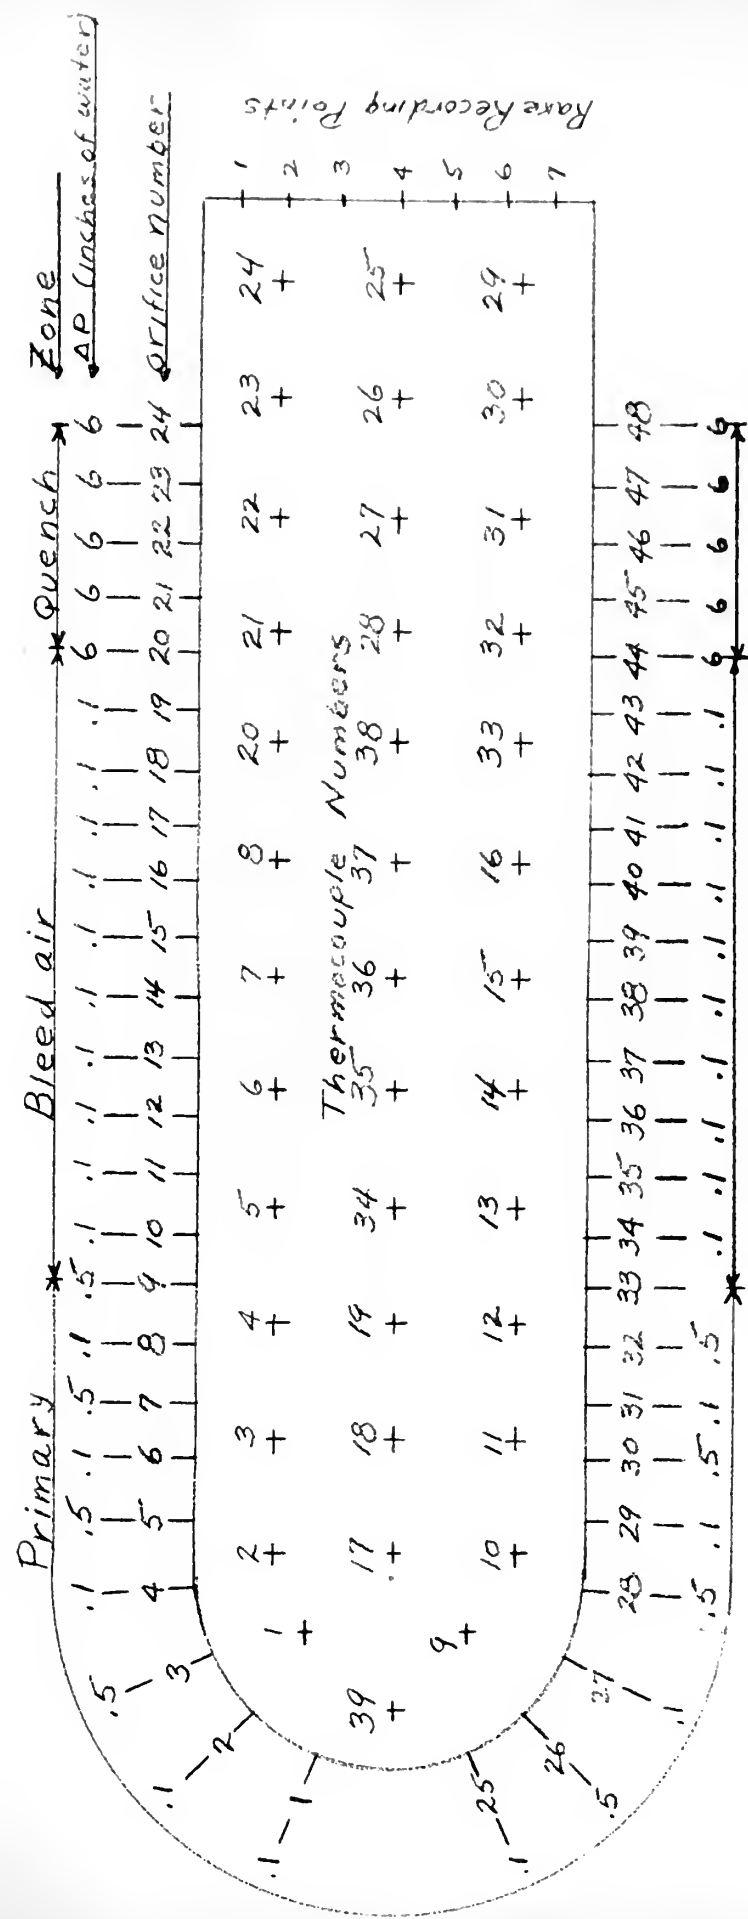 Zone
ΔP (inches of water)
orifice number
Primary Bleed air Quench
.1 .1 .5 .1 .5 .1 .5 .1 .5 .1 .1 .1 .1 .1 .1 .1 .1 .1 .1 6 6 6 6 6
1 2 3 4 5 6 7 8 9 10 11 12 13 14 15 16 17 18 19 20 21 22 23 24
1 2 3 4 5 6 7 8 20 21 22 23 24
Thermocouple Numbers
39 17 18 19 34 35 36 37 38 28 27 26 25
9 10 11 12 13 14 15 16 33 32 31 30 29
Rake Recording Points
1 2 3 4 5 6 7
25 26 27 28 29 30 31 32 33 34 35 36 37 38 39 40 41 42 43 44 45 46 47 48
.1 .5 .1 .5 .1 .5 .1 .5 .1 .1 .1 .1 .1 .1 .1 .1 .1 .1 6 6 6 6 6